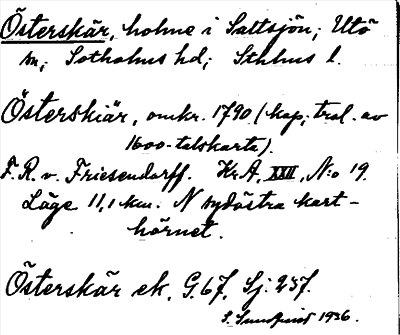 Österskär, holme i Saltsjön; Utö
sn; Sotholms hd; Sthlms l.
Österskiär, omkr. 1790 (kop; trol. av
1600-talskarta).
F. R. v. Friesendorff. Kr.A, XXII, N:o 19.
Läge 11,1 km. N sydöstra kart-
hörnet.
Österskär ek. G.67, Sj: 237.
S. Sundquist 1936.